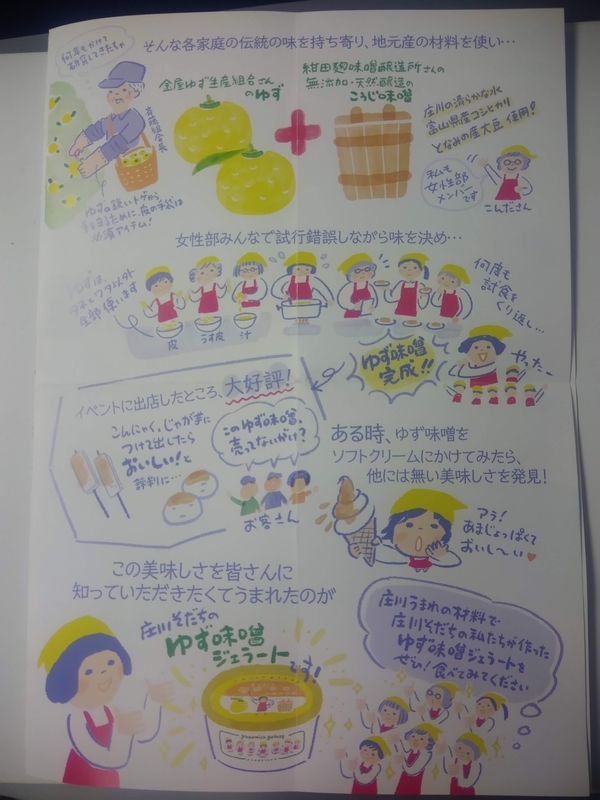 そんな各家庭の伝統の味を持ち寄り、地元産の材料を使い…
何年もかけて
研究してきたちゃ
金屋ゆず生産組合さん
のゆず
組合長
ゆずの鋭いトゲから
手を守るために、皮の手袋は
必須アイテム!
紺田麹味噌醸造所さんの
無添加・天然醸造の
こうじ味噌
庄川の清らかな水
富山県産コシヒカリ
となみの産大豆 使用!
私も
女性部
メンバー
です
こんださん
女性部みんなで試行錯誤しながら味を決め…
ゆずは、
タネとワタ以外
全部使います
皮
うす皮
汁
何度も
試食を
くり返し…
ゆず味噌
完成!!
やったー
イベントに出店したところ、大好評!
こんにゃく、じゃが芋に
つけて出したら
おいしい!と
評判に…
このゆず味噌、
売ってないがけ?
お客さん
ある時、ゆず味噌を
ソフトクリームにかけてみたら、
他には無い美味しさを発見!
アラ!
あまじょっぱくて
おいし〜い♥
この美味しさを皆さんに
知っていただきたくてうまれたのが
庄川そだちの
ゆず味噌
ジェラート
です!
庄川うまれの材料で
庄川そだちの私たちが作った
ゆず味噌ジェラートを
ぜひ!食べてみてください